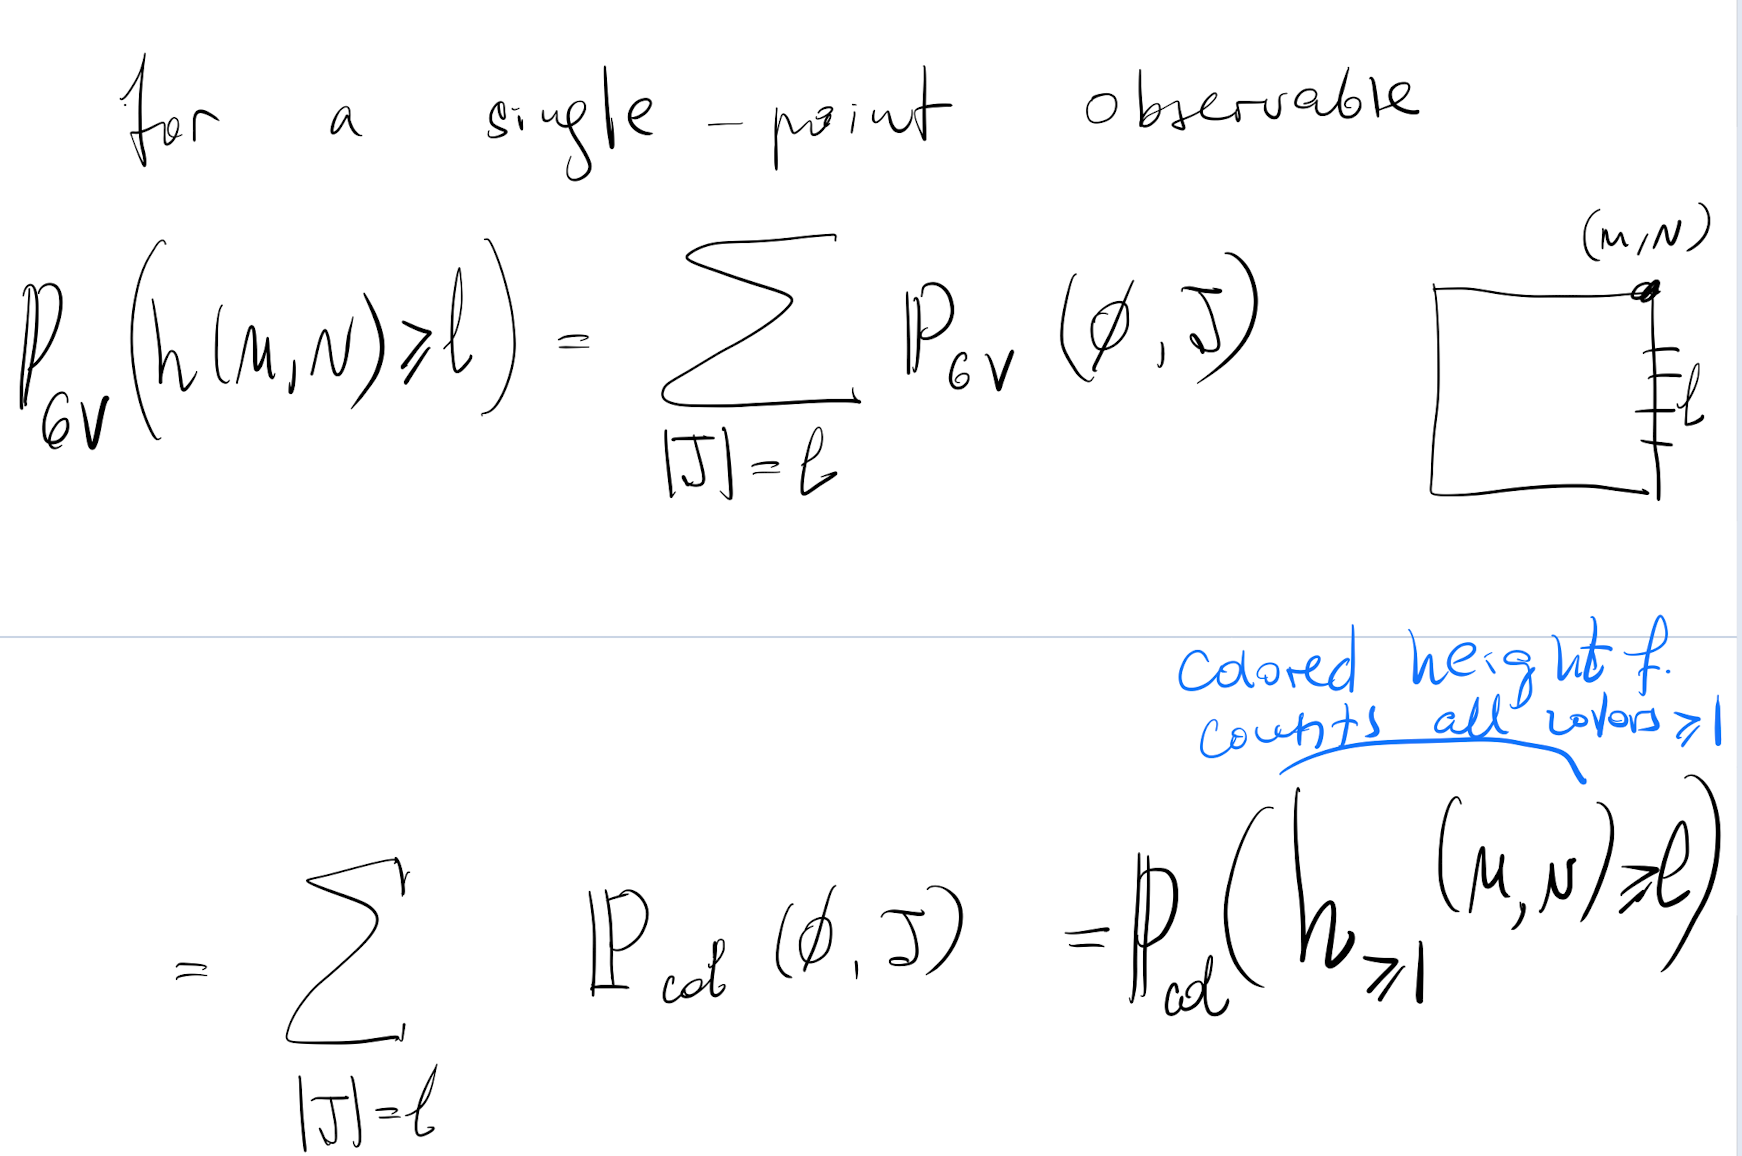 for a single-point observable
(M,N)
ℙ_6V (h(M,N) ⩾ ℓ) = ∑_{|J|=ℓ} ℙ_6V (ϕ, J)
ℓ
colored height f.
counts all colors ⩾ 1
= ∑_{|J|=ℓ} ℙ_col (ϕ, J) = ℙ_col (h_{⩾1} (M,N) ⩾ ℓ)